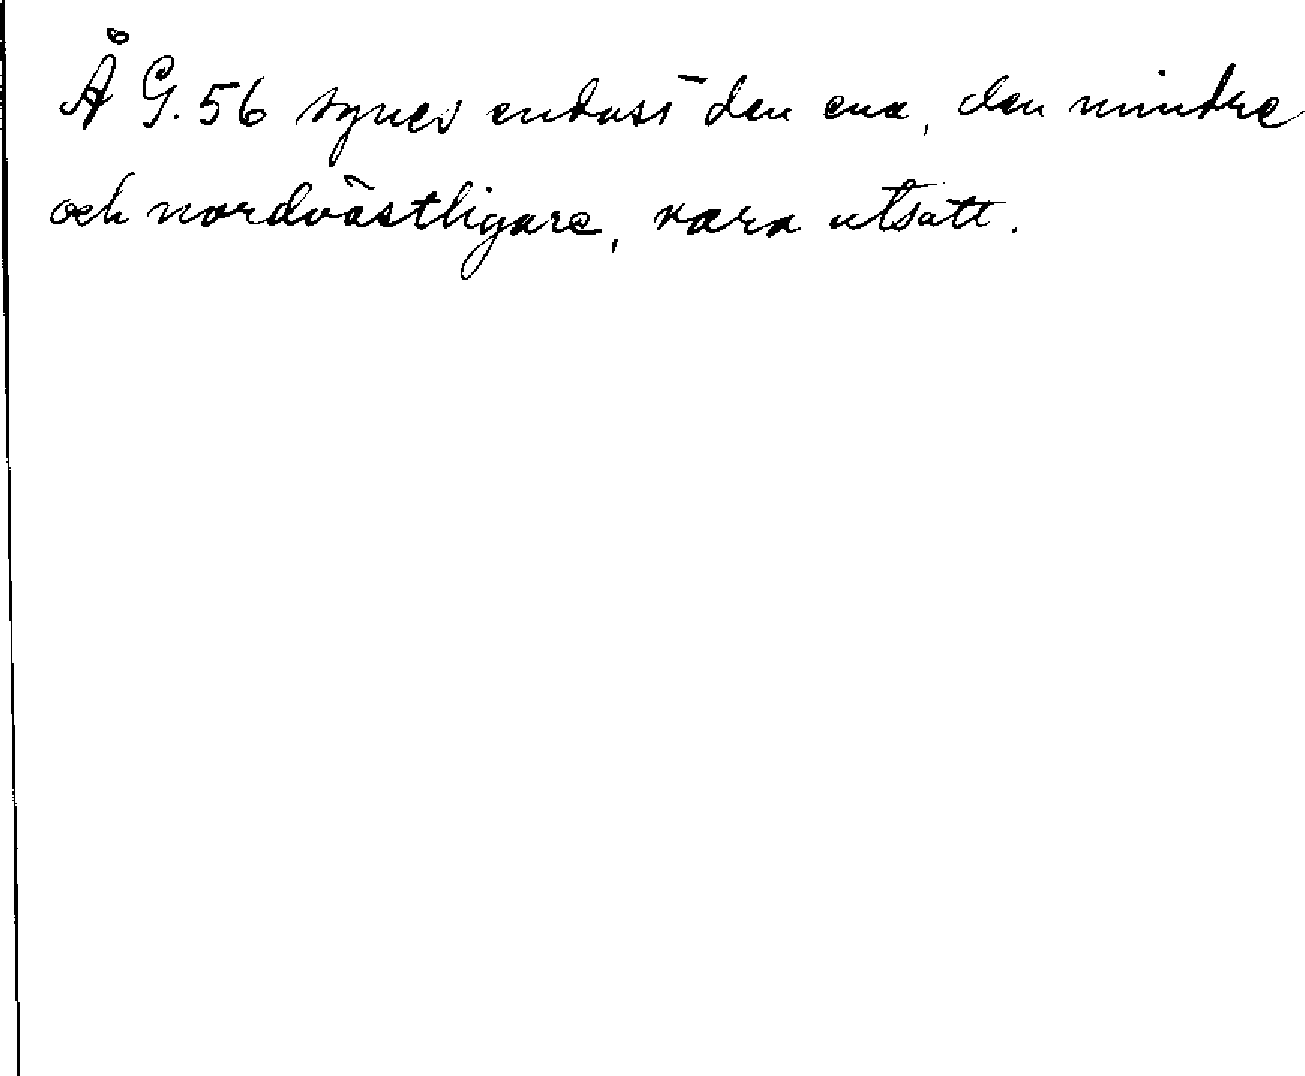 Å G. 56 synes endast den ena, den mindre
och nordvästligare, vara utsatt.